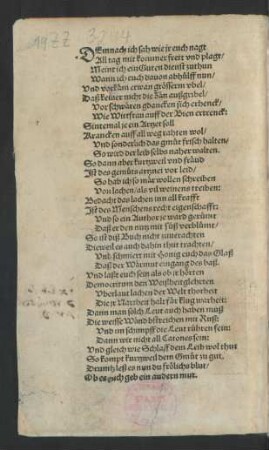 DEmnach ich sah wie jr euch nagt
All tag mit kommer frett vnd plagt/
Meint ich ein Guten dienst zuthun
Wann ich euch dauon abhülff nun/
Vnd vorkäm etwan grösserm vbel/
Daß keiner nicht die Sän außgrübel/
Vor schwären gdancken sich erhenck/
Wie Wirtfran auß der Bien ertrenck:
Sintemal je ein Artzet soll
Krancken auff all weg rahten wol/
Vnd sonderlich das gmüt frisch halten/
So wird der leib selbs naher walten.
So dann aber kurtzweil vnd fräud
Ist des gemüts artznei vor leid/
So hab ich so mär wollen schreiben
Von lachen/ als vil weinens treiben:
Bedacht des lachen inn all krafft
Ist des Menschens recht eigenschafft:
Vnd so ein Author je ward gerümt
Daß er den nutz mit süß verblümt/
So ist diß Buch nicht zuuerachten
Dieweil es auch dahin thut trachten/
Vnd schmiert mit Honig euch das Glaß
Daß der Wärmut eingang dest baß.
Vnd laßt euch sein als ob jr hörten
Democritum den Weißbergelehrten
Vberlaut lachen der Welt thorheit
Die jr Narrheit halt für klug warheit:
Dann man solch Leut auch haben muß
Die weisse Wänd bstreichen mit Ruß:
Vnd im schimpff die Leut rühren fein:
Dann wir nicht all Catones sein:
Vnd gleich wie Schlaff dem Leib wol thut
So kompt kurtzweil dem Gmüt zu gut.
Drumb leßt es nun du frölichs blut/
Ob es euch geb ein andern mut.